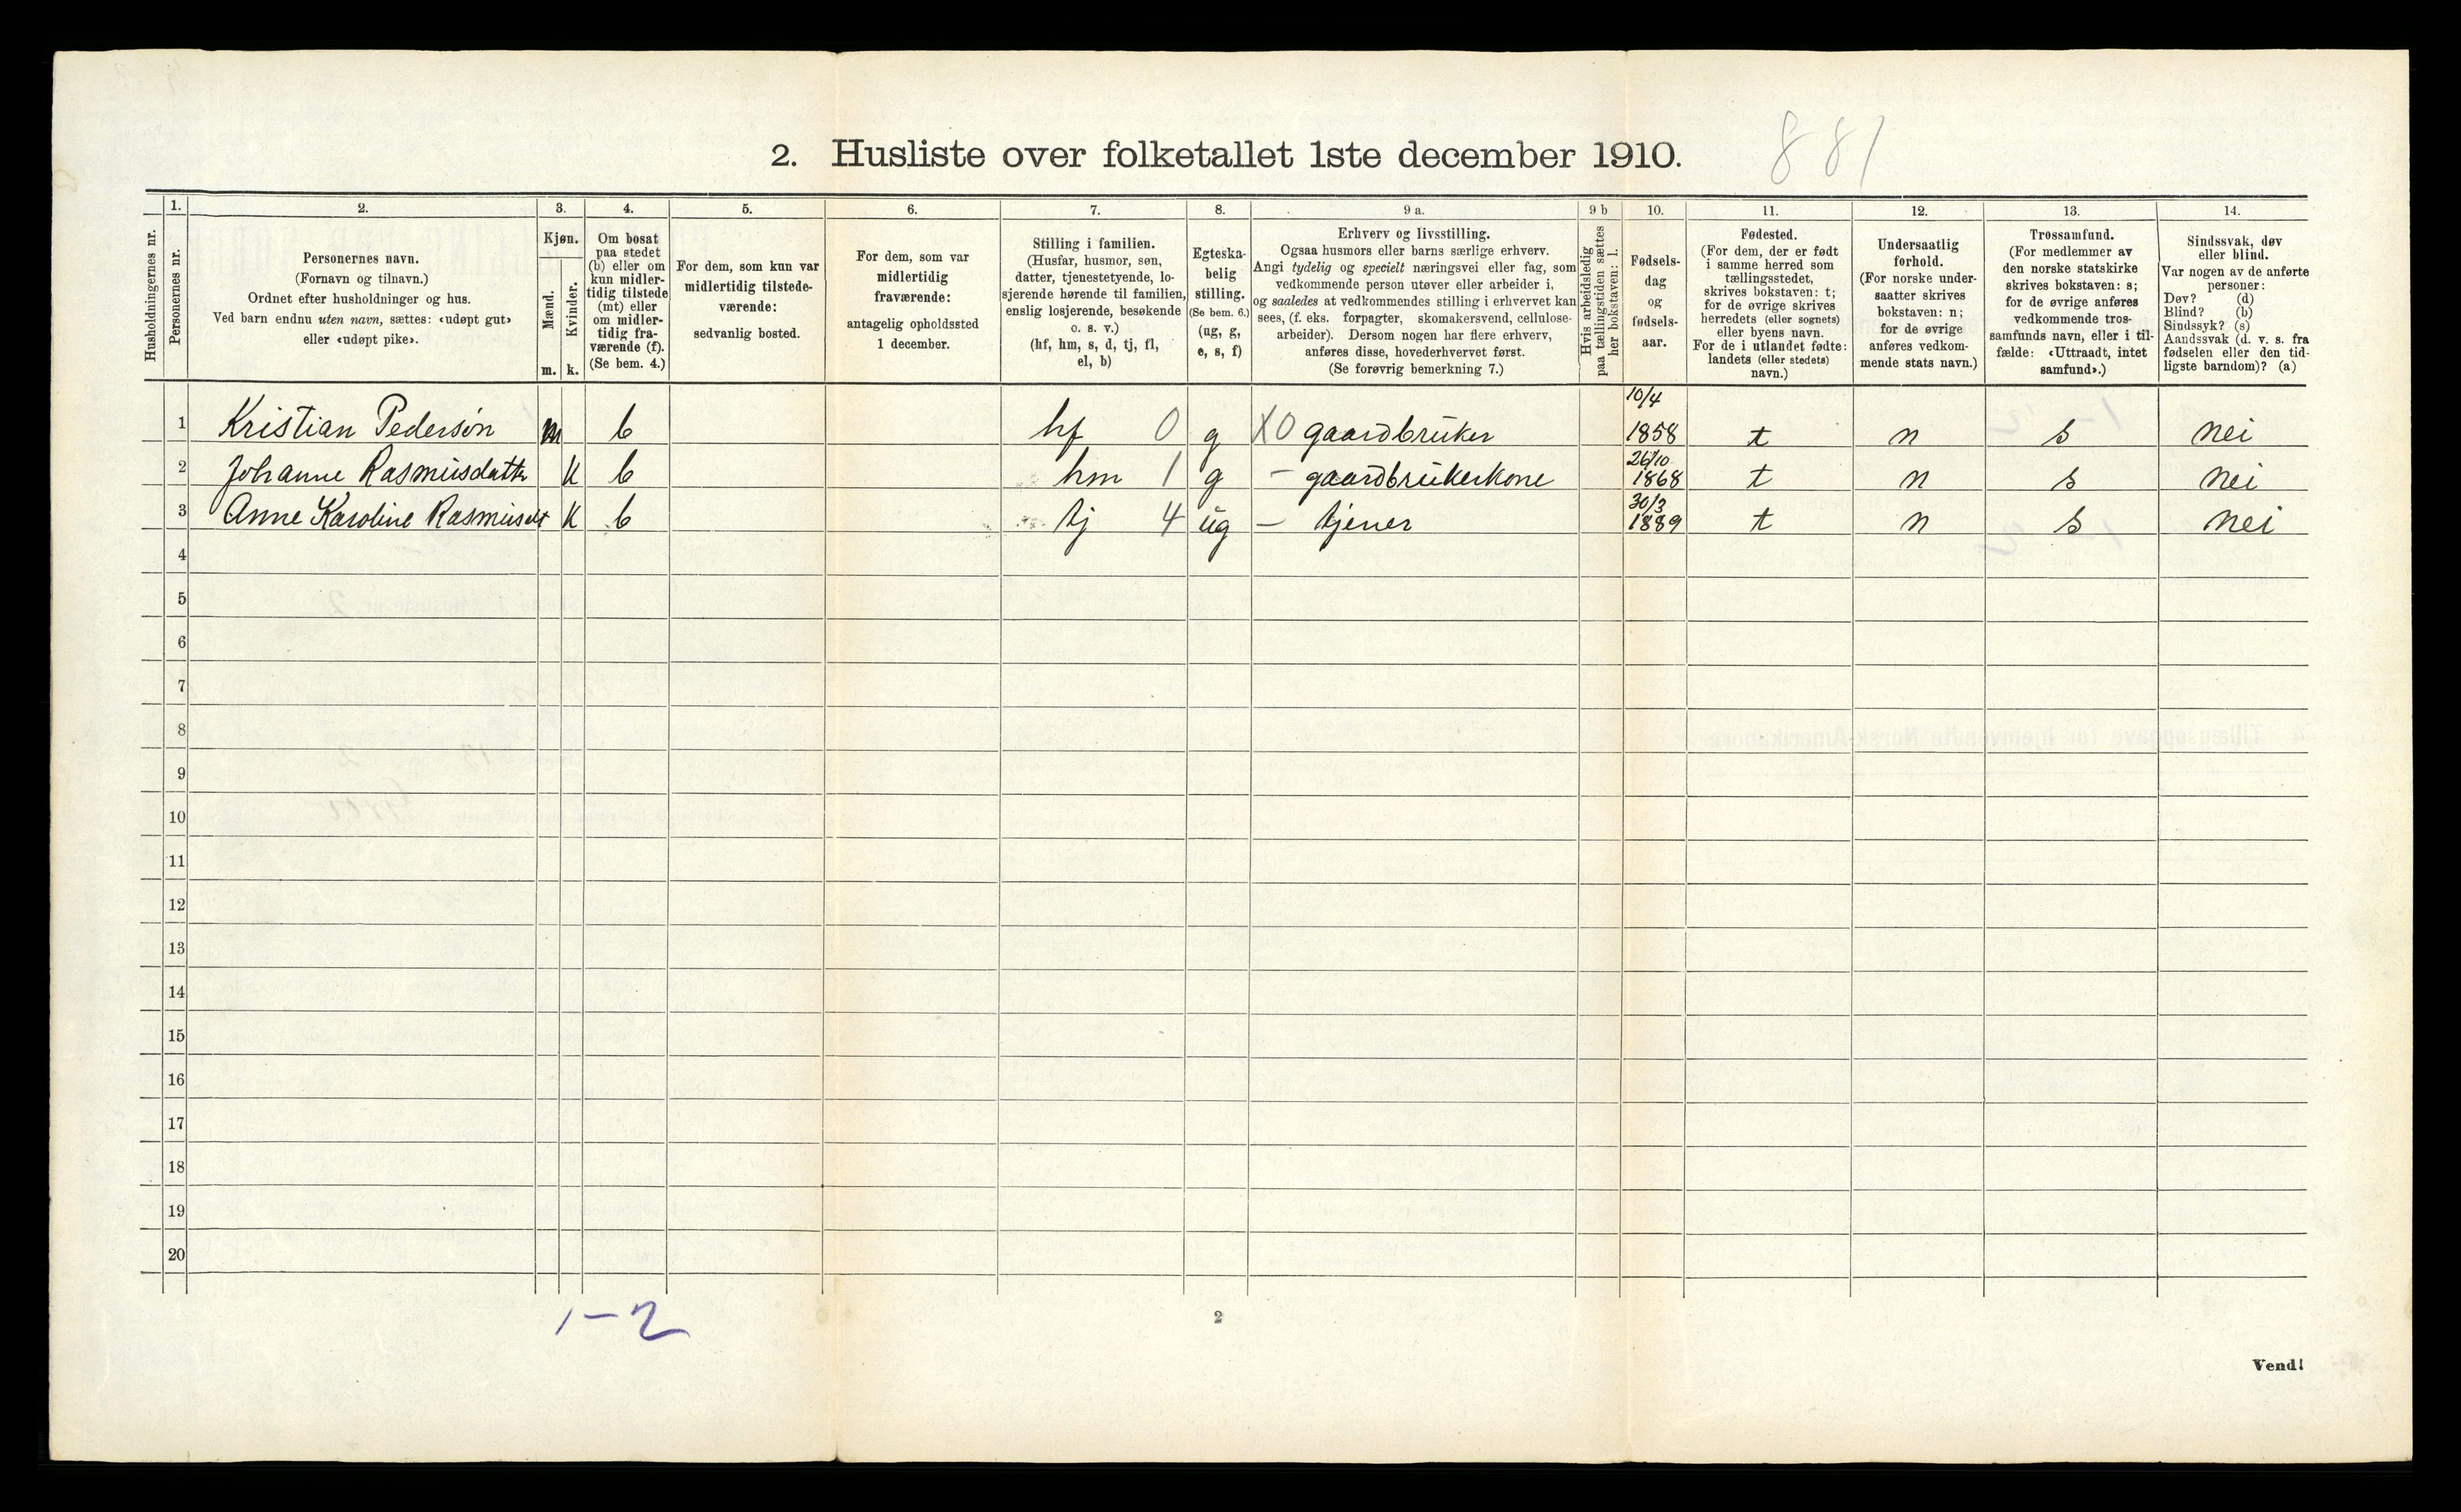 881
2. Husliste over folketallet 1ste december 1910.
1. 2. 3. 4. 5. 6. 7. 8. 9 a. 9 b 10. 11. 12. 13. 14.
Husholdningernes nr.
Personernes nr.
Personernes navn.
(Fornavn og tilnavn.)
Ordnet efter husholdninger og hus.
Ved barn endnu uten navn, sættes: «udøpt gut»
eller «udøpt pike».
Kjøn.
Mænd.
Kvinder.
m. k.
Om bosat
paa stedet
(b) eller om
kun midler-
tidig tilstede
(mt) eller
om midler-
tidig fra-
værende (f).
(Se bem. 4.)
For dem, som kun var
midlertidig tilstede-
værende:
sedvanlig bosted.
For dem, som var
midlertidig
fraværende:
antagelig opholdssted
1 december.
Stilling i familien.
(Husfar, husmor, søn,
datter, tjenestetyende, lo-
sjerende hørende til familien,
enslig losjerende, besøkende
o. s. v.)
(hf, hm, s, d, tj, fl,
el, b)
Egteska-
belig
stilling.
(Se bem. 6.)
(ug, g,
e, s, f)
Erhverv og livsstilling.
Ogsaa husmors eller barns særlige erhverv.
Angi tydelig og specielt næringsvei eller fag, som
vedkommende person utøver eller arbeider i,
og saaledes at vedkommendes stilling i erhvervet kan
sees, (f. eks. forpagter, skomakersvend, cellulose-
arbeider). Dersom nogen har flere erhverv,
anføres disse, hovederhvervet først.
(Se forøvrig bemerkning 7.)
Hvis arbeidsledig
paa tællingstiden sættes
her bokstaven: l.
Fødsels-
dag
og
fødsels-
aar.
Fødested.
(For dem, der er født
i samme herred som
tællingsstedet,
skrives bokstaven: t;
for de øvrige skrives
herredets (eller sognets)
eller byens navn.
For de i utlandet fødte:
landets (eller stedets)
navn.)
Undersaatlig
forhold.
(For norske under-
saatter skrives
bokstaven: n;
for de øvrige
anføres vedkom-
mende stats navn.)
Trossamfund.
(For medlemmer av
den norske statskirke
skrives bokstaven: s;
for de øvrige anføres
vedkommende tros-
samfunds navn, eller i til-
fælde: «Uttraadt, intet
samfund».)
Sindssvak, døv
eller blind.
Var nogen av de anførte
personer:
Døv? (d)
Blind? (b)
Sindssyk? (s)
Aandssvak (d. v. s. fra
fødselen eller den tid-
ligste barndom)? (a)
1 Kristian Pedersøn m b hf 0 g X0 gaardbruker 10/4 1858 t n s nei
2 Johanne Rasmusdattr k b hm 1 g - gaardbrukerkone 26/10 1868 t n s nei
3 Anne Karoline Rasmusdt k b tj 4 ug - tjener 30/3 1889 t n s nei
4
5
6
7
8
9
10
11
12
13
14
15
16
17
18
19
20
1-2
2
Vend!